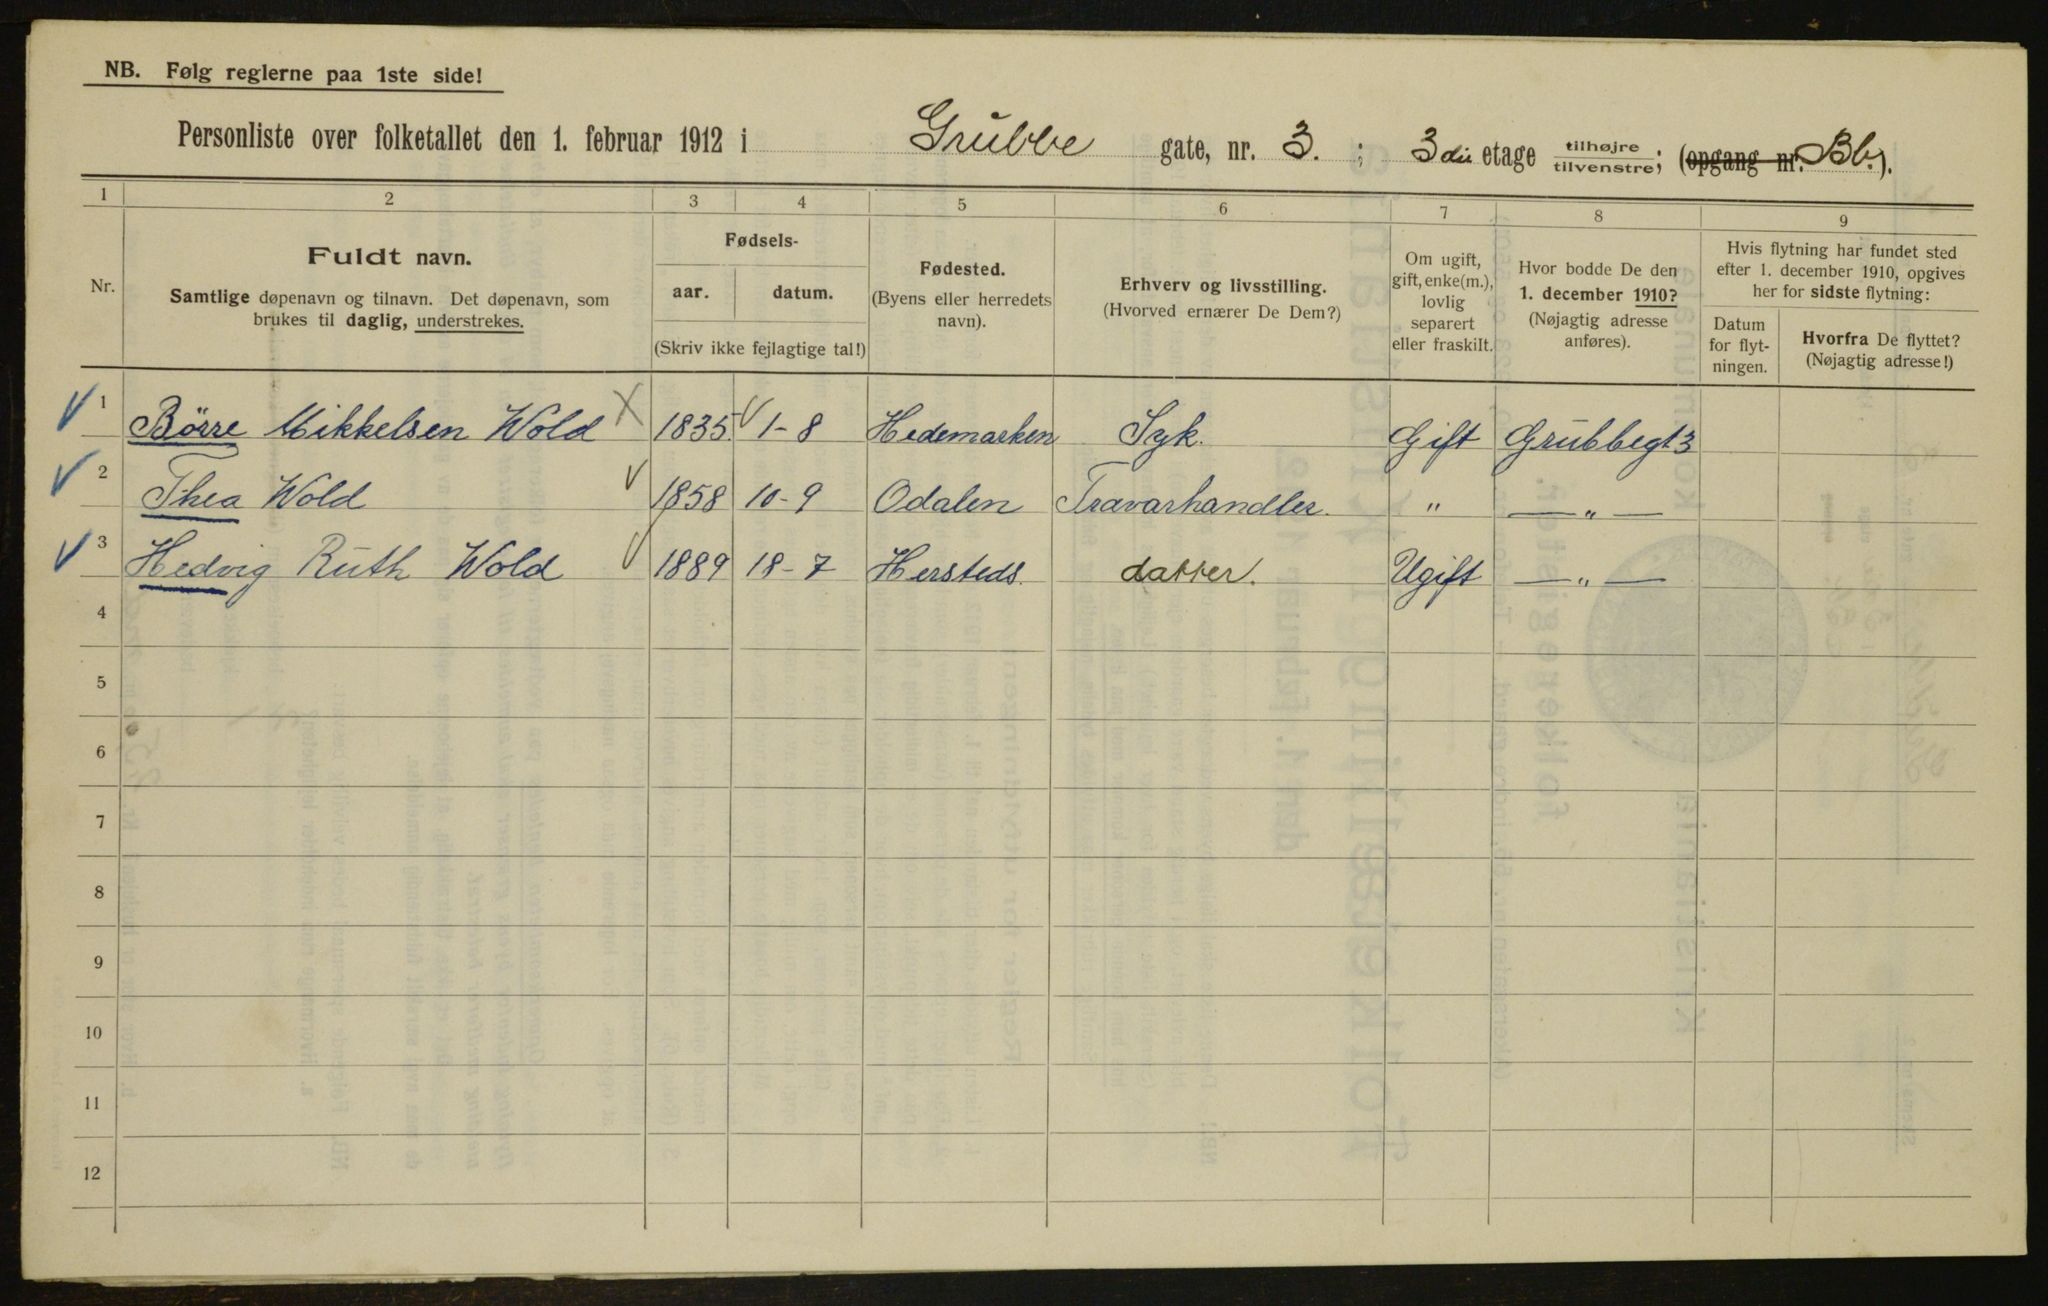 NB. Følg reglerne paa 1ste side!
Personliste over folketallet den 1. februar 1912 i Grubbe gate, nr. 3. ; 3die etage tilhøjre/tilvenstre; (opgang nr. Bb.).
1 2 3 4 5 6 7 8 9
Nr.
Fuldt navn.
Samtlige døpenavn og tilnavn. Det døpenavn, som
brukes til daglig, understrekes.
Fødsels-
aar. datum.
(Skriv ikke fejlagtige tal!)
Fødested.
(Byens eller herredets
navn).
Erhverv og livsstilling.
(Hvorved ernærer De Dem?)
Om ugift,
gift, enke(m.),
lovlig
separert
eller fraskilt.
Hvor bodde De den
1. december 1910?
(Nøjagtig adresse
anføres).
Hvis flytning har fundet sted
efter 1. december 1910, opgives
her for sidste flytning:
Datum
for flyt-
ningen.
Hvorfra De flyttet?
(Nøjagtig adresse!)
1 Börre Mikkelsen Wold 1835. 1-8 Hedemarken Syk. Gift Grubbegt 3
2 Thea Wold 1858 10-9 Odalen Travarhandler. " — " —
3 Hedvig Ruth Wold 1889 18-7 Hersteds. datter. Ugift — " —
4
5
6
7
8
9
10
11
12